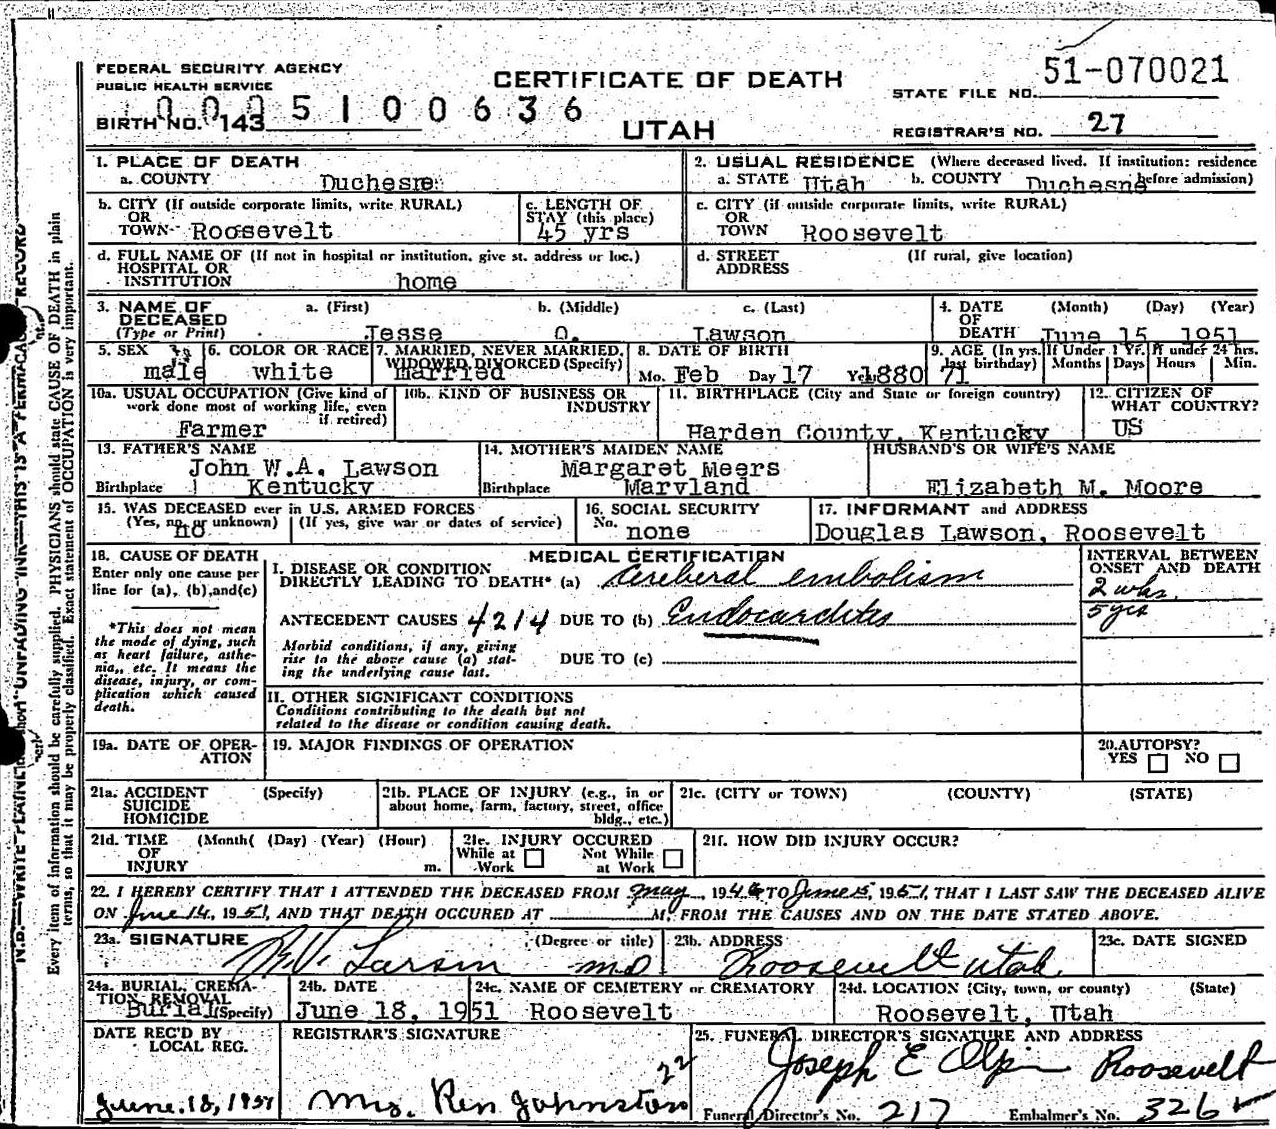 FEDERAL SECURITY AGENCY
PUBLIC HEALTH SERVICE
CERTIFICATE OF DEATH
UTAH
STATE FILE NO. 51-070021
REGISTRAR'S NO. 27
0005100636
BIRTH NO. 143
1. PLACE OF DEATH
a. COUNTY Duchesne
2. USUAL RESIDENCE (Where deceased lived. If institution: residence before admission)
a. STATE Utah b. COUNTY Duchesne
b. CITY (If outside corporate limits, write RURAL)
OR
TOWN Roosevelt
c. LENGTH OF
STAY (this place)
45 yrs
c. CITY (if outside corporate limits, write RURAL)
OR
TOWN Roosevelt
d. FULL NAME OF (If not in hospital or institution, give st. address or loc.)
HOSPITAL OR
INSTITUTION home
d. STREET (If rural, give location)
ADDRESS
3. NAME OF DECEASED (Type or Print)
a. (First) b. (Middle) c. (Last)
Jesse O. Lawson
4. DATE OF DEATH (Month) (Day) (Year)
June 15 1951
5. SEX
male
6. COLOR OR RACE
white
7. MARRIED, NEVER MARRIED,
WIDOWED DIVORCED (Specify)
married
8. DATE OF BIRTH
Mo. Feb Day 17 Yr. 1880
9. AGE (In yrs. last birthday)
71
If Under 1 Yr. Months Days
If under 24 hrs. Hours Min.
10a. USUAL OCCUPATION (Give kind of
work done most of working life, even
if retired)
Farmer
10b. KIND OF BUSINESS OR
INDUSTRY
11. BIRTHPLACE (City and State or foreign country)
Harden County, Kentucky
12. CITIZEN OF
WHAT COUNTRY?
US
13. FATHER'S NAME
John W.A. Lawson
Birthplace Kentucky
14. MOTHER'S MAIDEN NAME
Margaret Meers
Birthplace Maryland
HUSBAND'S OR WIFE'S NAME
Elizabeth M. Moore
15. WAS DECEASED ever in U.S. ARMED FORCES
(Yes, no, or unknown) (If yes, give war or dates of service)
no
16. SOCIAL SECURITY
No. none
17. INFORMANT and ADDRESS
Douglas Lawson, Roosevelt
18. CAUSE OF DEATH
Enter only one cause per
line for (a), (b), and (c)
*This does not mean
the mode of dying, such
as heart failure, asthe-
nia, etc. It means the
disease, injury, or com-
plication which caused
death.
MEDICAL CERTIFICATION
I. DISEASE OR CONDITION
DIRECTLY LEADING TO DEATH* (a) Cereberal embolism
ANTECEDENT CAUSES 4214 DUE TO (b) Endocarditis
Morbid conditions, if any, giving
rise to the above cause (a) stat-
ing the underlying cause last.
DUE TO (c)
II. OTHER SIGNIFICANT CONDITIONS
Conditions contributing to the death but not
related to the disease or condition causing death.
INTERVAL BETWEEN
ONSET AND DEATH
2 wks.
5 yrs
19a. DATE OF OPER-
ATION
19. MAJOR FINDINGS OF OPERATION
20. AUTOPSY?
YES NO
21a. ACCIDENT (Specify)
SUICIDE
HOMICIDE
21b. PLACE OF INJURY (e.g., in or
about home, farm, factory, street, office
bldg., etc.)
21c. (CITY or TOWN) (COUNTY) (STATE)
21d. TIME (Month) (Day) (Year) (Hour)
OF
INJURY m.
21e. INJURY OCCURED
While at Work Not While at Work
21f. HOW DID INJURY OCCUR?
22. I HEREBY CERTIFY THAT I ATTENDED THE DECEASED FROM May, 1946 TO June 15, 1951, THAT I LAST SAW THE DECEASED ALIVE
ON June 14, 1951, AND THAT DEATH OCCURED AT M. FROM THE CAUSES AND ON THE DATE STATED ABOVE.
23a. SIGNATURE (Degree or title)
Larsen MD
23b. ADDRESS
Roosevelt Utah
23c. DATE SIGNED
24a. BURIAL, CREMA-
TION, REMOVAL
(Specify)
Burial
24b. DATE
June 18, 1951
24c. NAME OF CEMETERY or CREMATORY
Roosevelt
24d. LOCATION (City, town, or county) (State)
Roosevelt, Utah
DATE REC'D BY
LOCAL REG.
June 18, 1951
REGISTRAR'S SIGNATURE
Mrs. Ren Johnston
22
25. FUNERAL DIRECTOR'S SIGNATURE AND ADDRESS
Joseph E Olpin Roosevelt
Funeral Director's No. 217 Embalmer's No. 326
Every item of information should be carefully supplied. PHYSICIANS should state CAUSE OF DEATH in plain
terms, so that it may be properly classified. Exact statement of OCCUPATION is very important.